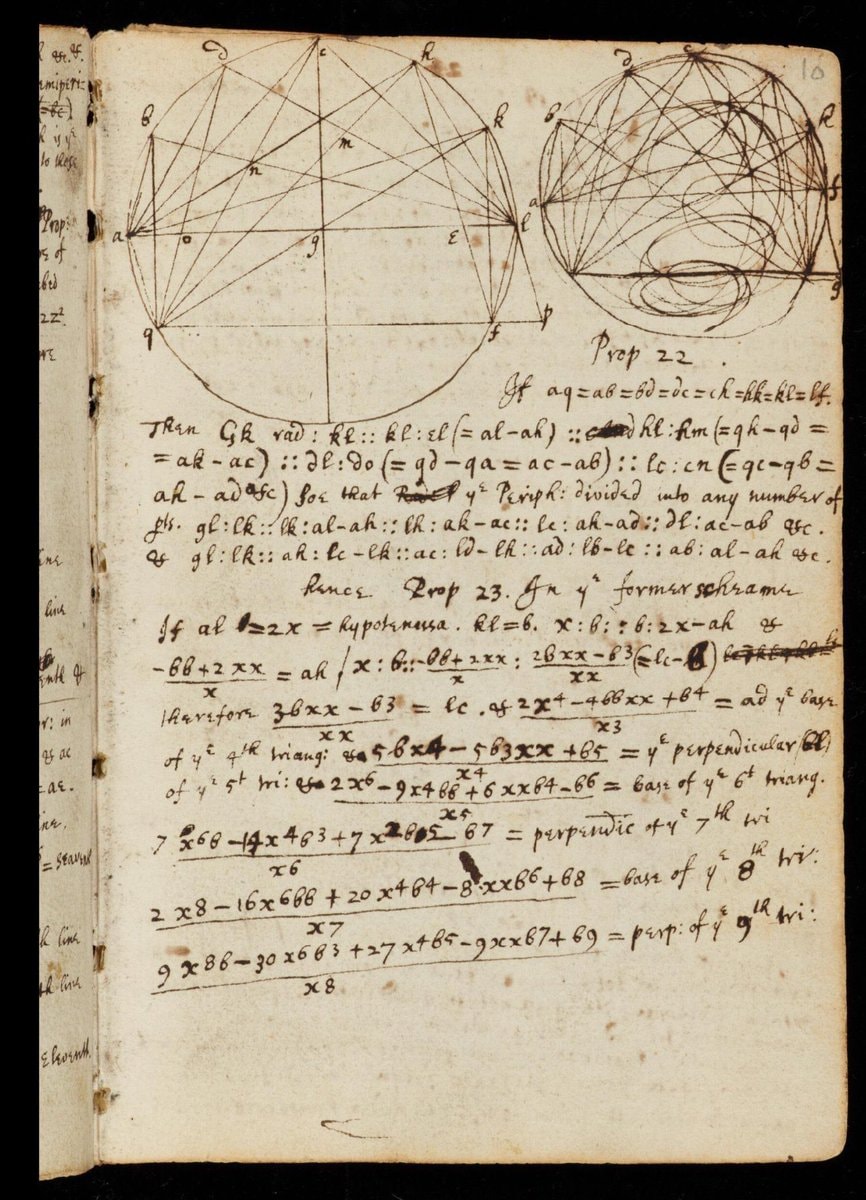 10
d
c
h
b
k
n
m
a
o
g
ε
l
q
f
p
d
c
b
k
a
f
g
Prop 22.
If aq=ab=bd=dc=ch=hk=kl=lf.
Then Gk rad: kl:: kl: εl (= al-ah) :: hl: hm (= qh-qd =
= ak-ac) :: dl: do (= qd-qa = ac-ab) :: lc: cn (= qc-qb =
ah-ad &c) soe that yᵉ Periph: divided into any number of
pts. gl:lk::lk:al-ah::lh:ak-ac::lc:ah-ad::dl:ac-ab &c.
& gl:lk::ah:lc-lk::ac:ld-lh::ad:lb-lc::ab:al-ah &c.
hence Prop 23. In yᵉ former scheame
If al =2x = hypotenusa. kl=b. x:b::b:2x-ah &
-bb+2xx / x = ah / x:b:: -bb+2xx / x : 2bxx-b3 / xx (=lc-b)
therefore 3bxx-b3 / xx = lc. & 2x4-4bbxx+b4 / x3 = ad yᵉ base
of yᵉ 4th triang: & 5bx4-5b3xx+b5 / x4 = yᵉ perpendicular (bl)
of yᵉ 5t tri: & 2x6-9x4bb+6xxb4-b6 / x5 = base of yᵉ 6t triang.
7x6b-14x4b3+7x2b5-b7 / x6 = perpendic of yᵉ 7th tri
2x8-16x6bb+20x4b4-8xxb6+b8 / x7 = base of yᵉ 8th tri:
9x8b-30x6b3+27x4b5-9xxb7+b9 / x8 = perp: of yᵉ 9th tri:
&c. &.
Prop:
2z².
line
line
& ac
= ae.
line
line
eleventh.